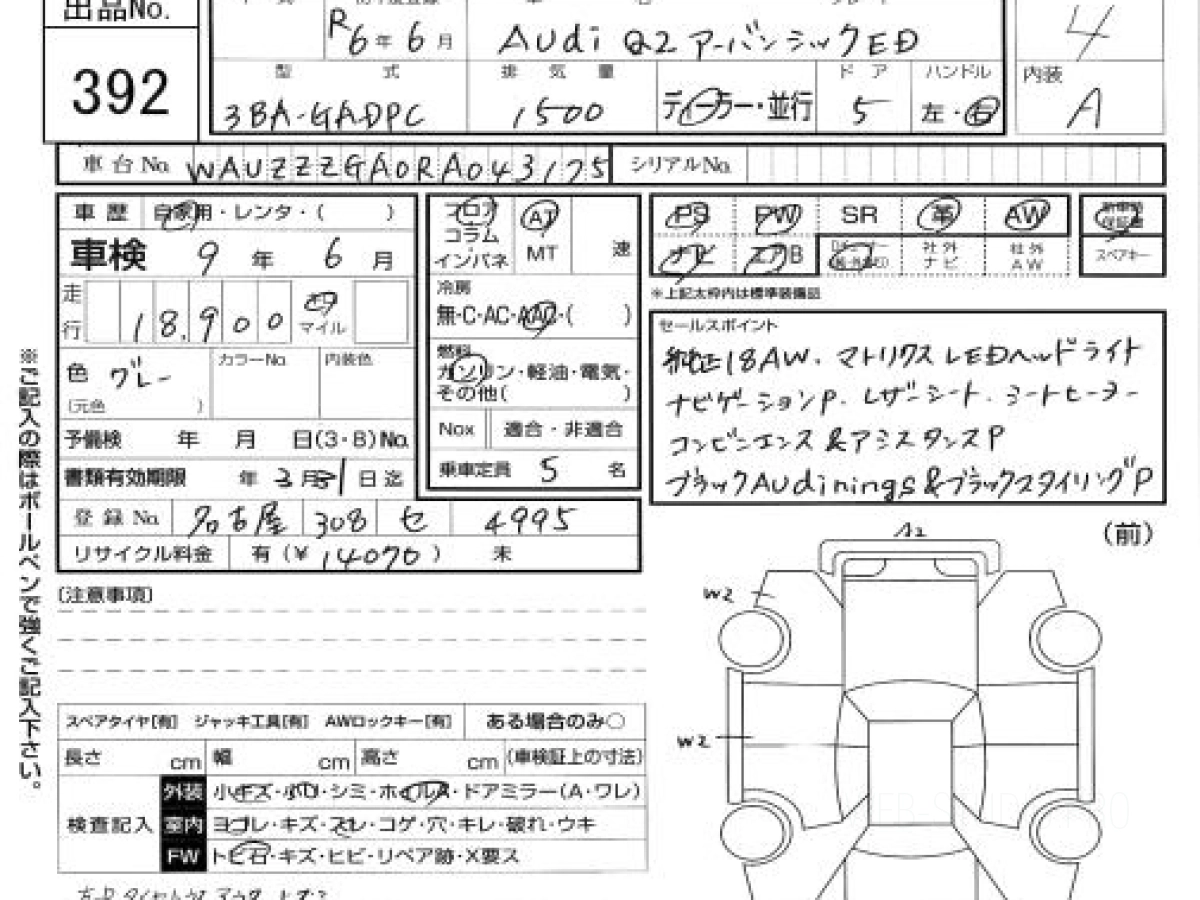 出品No.
392
R6年 6月
Audi Q2 アーバンシックED
4
型 式
排 気 量
ドア
ハンドル
内装
3BA-GADPC
1500
ディーラー・並行
5
左・右
A
車台No.
WAUZZZGA0RA043175
シリアルNo.
車 歴 自家用・レンタ・( )
車検 9年 6月
走行 18,900 マイル
色 グレー
(元色 )
カラーNo.
内装色
予備検 年 月 日(3・8)No.
書類有効期限 年 3月31日迄
登 録 No. 名古屋 308 セ 4995
リサイクル料金 有(¥ 14070 ) 未
フロア
コラム
インパネ
AT
MT
速
冷房
無・C・AC・AAC・( )
燃料
ガソリン・軽油・電気・
その他( )
Nox 適合・非適合
乗車定員 5 名
PS PW SR 革 AW
ナビ エアB
社外ナビ
社外AW
スペアキー
※上記太枠内は標準装備品
セールスポイント
純正18AW. マトリクスLEDヘッドライト
ナビゲーションP. レザーシート. シートヒーター
コンビニエンス&アシスタンスP
ブラックAudirings&ブラックスタイリングP
(前)
A2
W2
W2
(注意事項)
スペアタイヤ[有] ジャッキ工具[有] AWロックキー[有] ある場合のみ○
長さ cm 幅 cm 高さ cm (車検証上の寸法)
検査記入
外装 小キズ・小凹・シミ・ホイルA・ドアミラー(A・ワレ)
車内 ヨゴレ・キズ・スレ・コゲ・穴・キレ・破れ・ウキ
FW トビ石・キズ・ヒビ・リペア跡・X要ス
※ご記入の際はボールペンで強くご記入下さい。